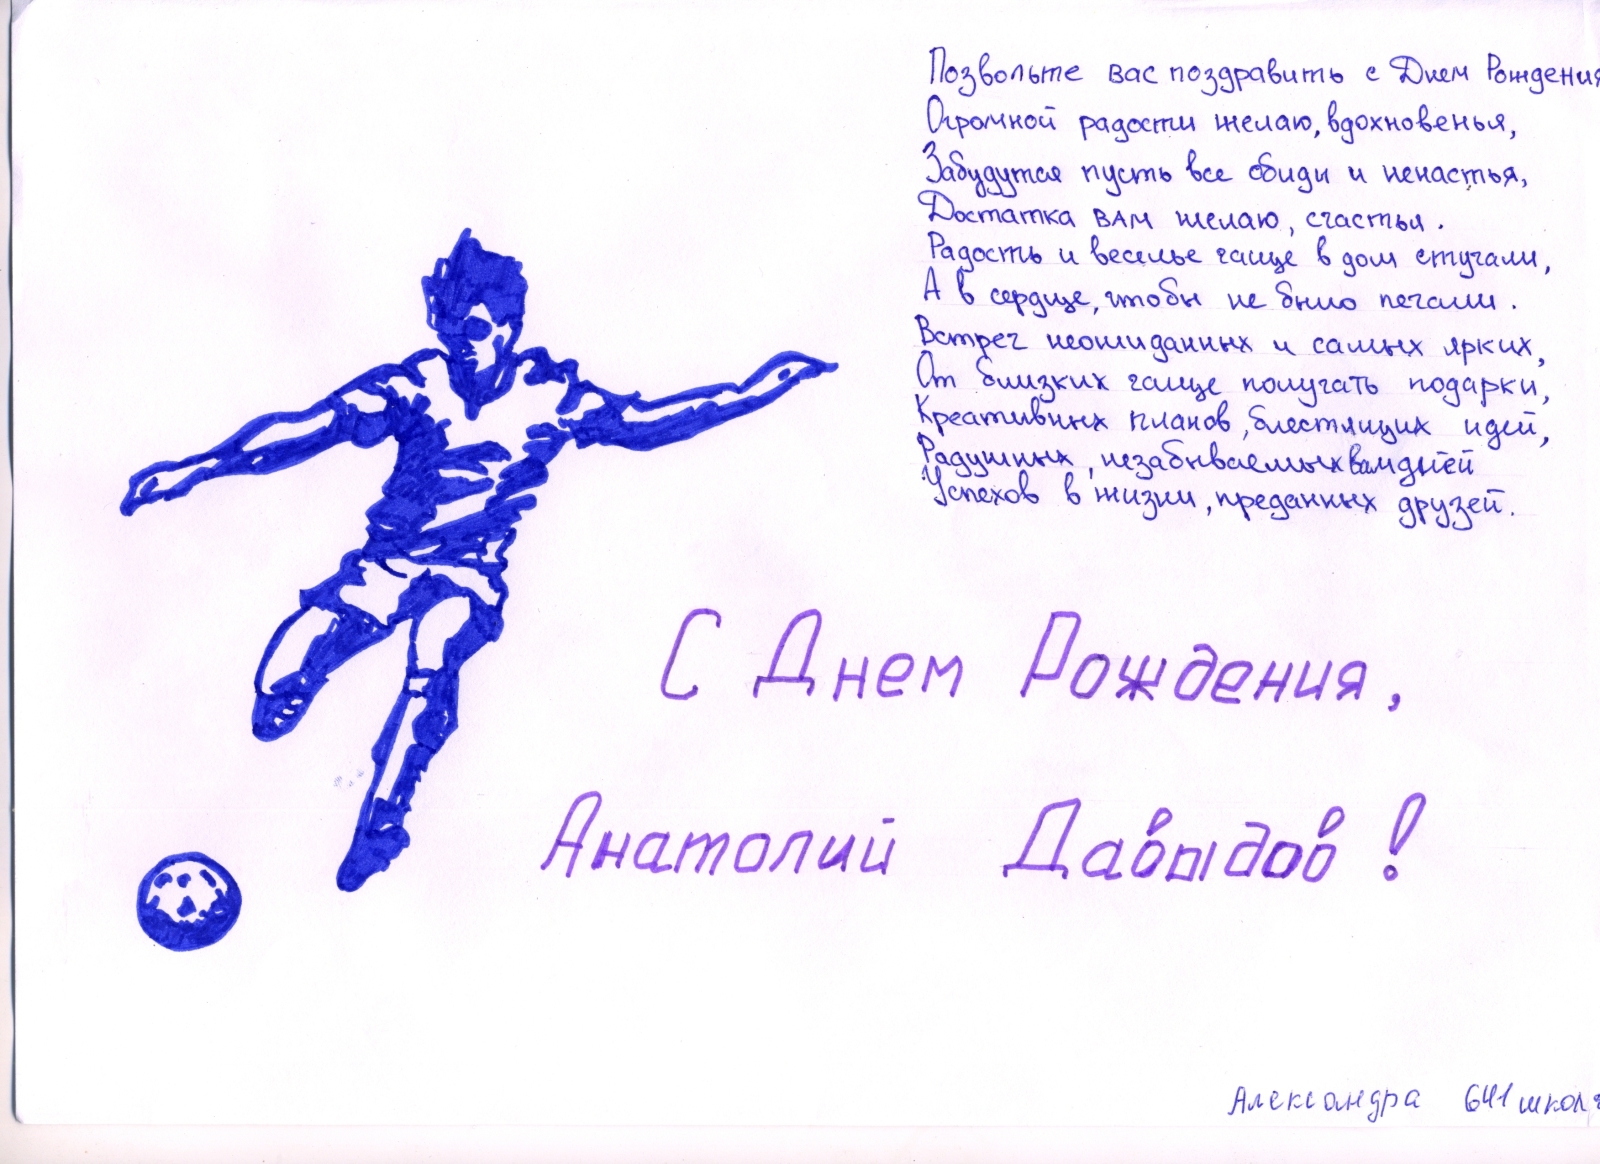 Позвольте вас поздравить с Днем Рождения
Огромной радости желаю, вдохновенья,
Забудутся пусть все обиды и ненастья,
Достатка вам желаю, счастья.
Радость и веселье чаще в дом стучали,
А в сердце, чтобы не было печали.
Встреч неожиданных и самых ярких,
От близких чаще получать подарки,
Креативных планов, блестящих идей,
Радушных, незабываемых вам дней
Успехов в жизни, преданных друзей.
С Днем Рождения,
Анатолий Давыдов!
Александра 641 школа